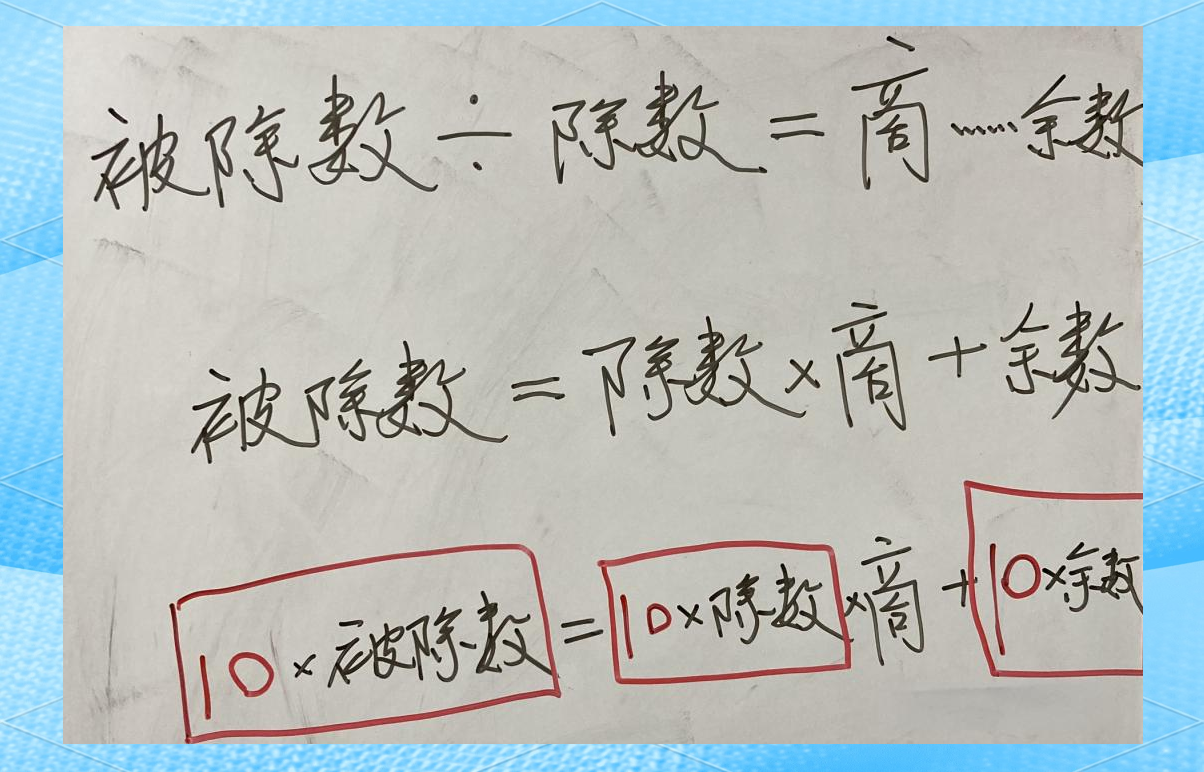 被除数÷除数=商……余数
被除数=除数×商+余数
10×被除数=10×除数×商+10×余数